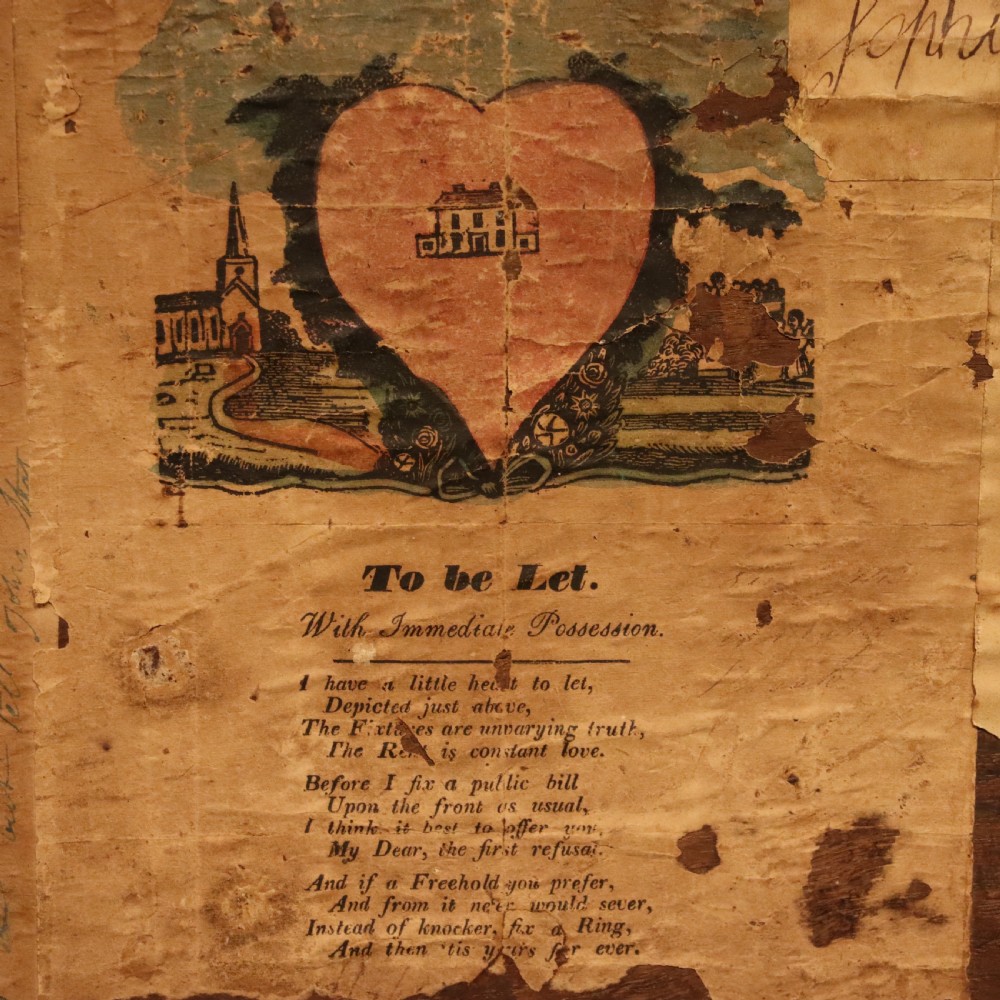 To be Let.
With Immediate Possession.
I have a little heart to let,
Depicted just above,
The Fixtures are unvarying truth,
The Rent is constant love.
Before I fix a public bill
Upon the front as usual,
I think it best to offer you,
My Dear, the first refusal.
And if a Freehold you prefer,
And from it ne'er would sever,
Instead of knocker, fix a Ring,
And then 'tis yours for ever.
Sophi